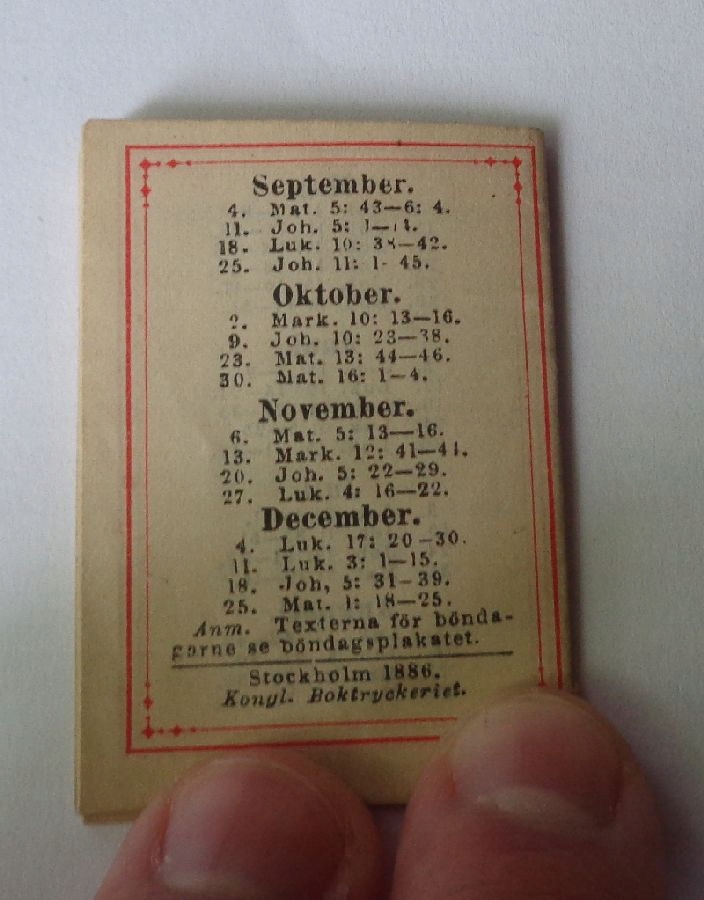 September.
4. Mat. 5: 43—6: 4.
11. Joh. 5:
18. Luk. 10: 38—42.
25. Joh. 11: 1- 45.
Oktober.
2. Mark. 10: 13—16.
9. Joh. 10: 23—38.
23. Mat. 13: 44—46.
30. Mat. 16: 1—4.
November.
6. Mat. 5: 13—16.
13. Mark. 12: 41—44.
20. Joh. 5: 22—29.
27. Luk. 4: 16—22.
December.
4. Luk. 17: 20—30.
11. Luk. 3: 1—15.
18. Joh, 5: 31—39.
25. Mat. 1: 18—25.
Anm. Texterna för bönda-
garne se böndagsplakatet.
Stockholm 1886.
Kongl. Boktryckeriet.